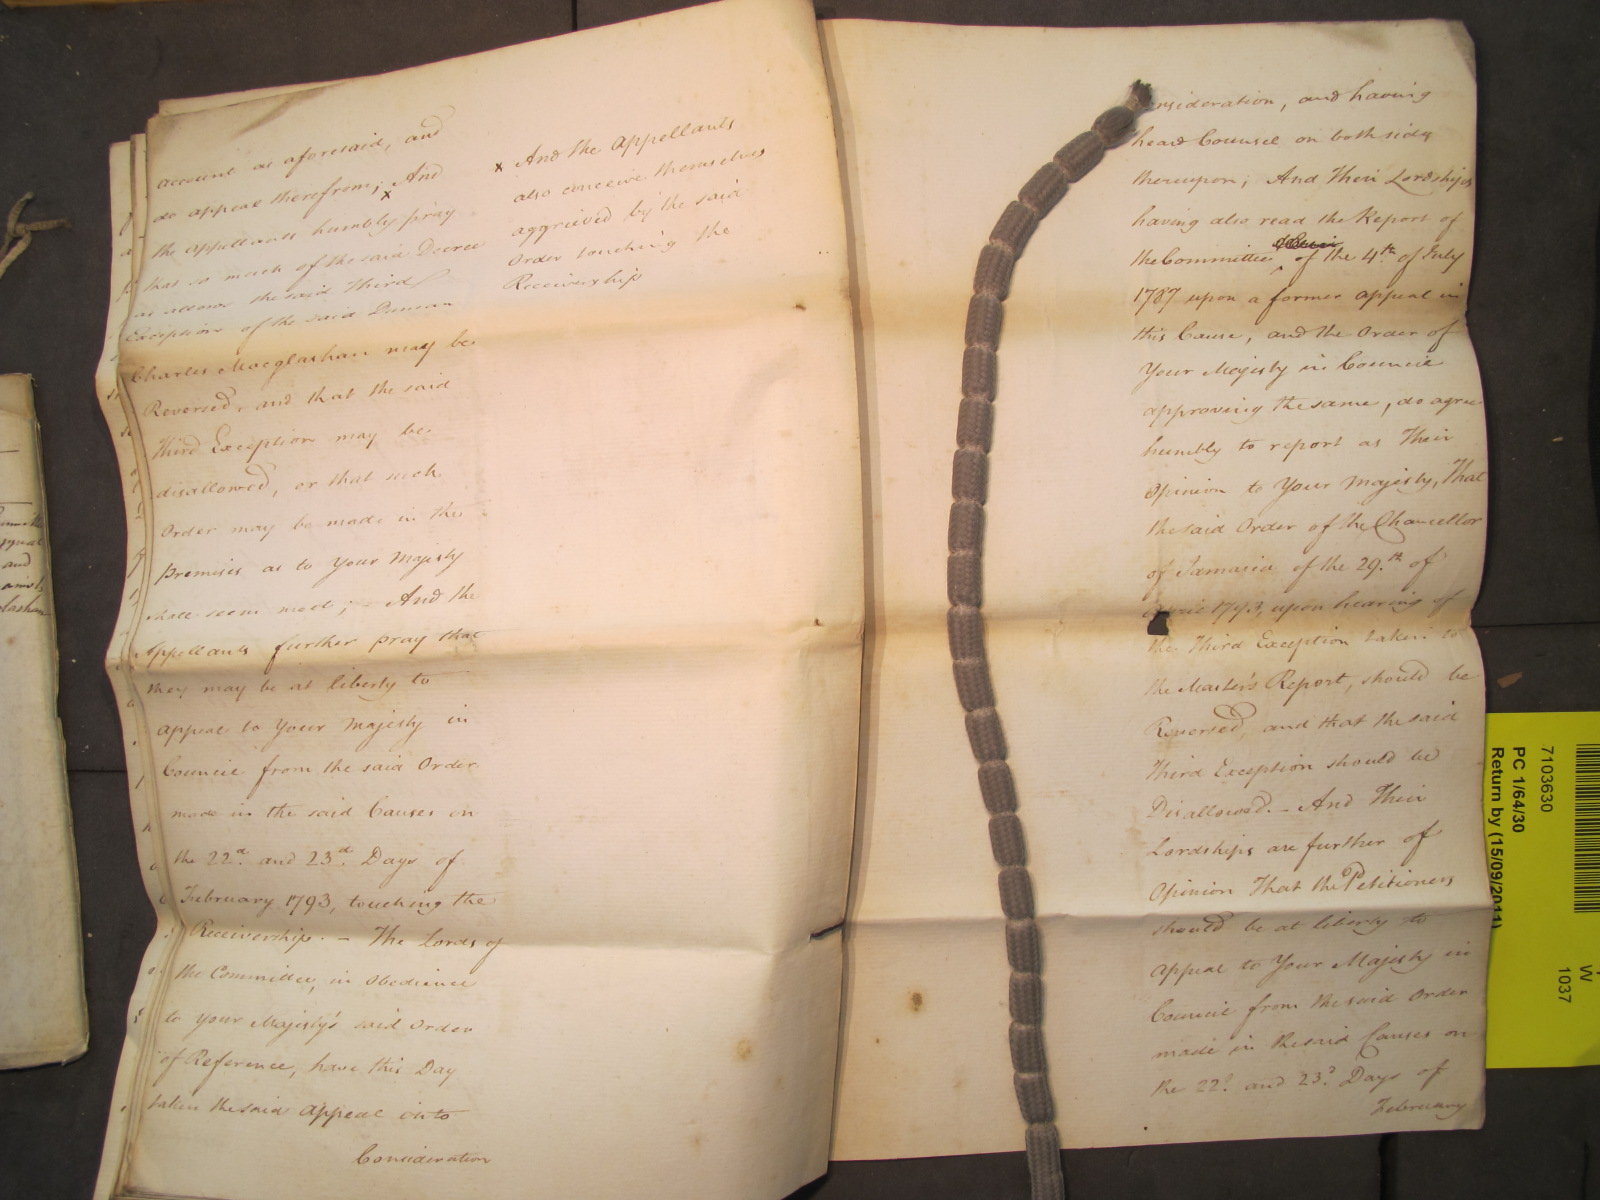 account as aforesaid, and
do appeal therefrom; x And
the appellants humbly pray
that so much of the said Decree
as allows the said Third
Exception of the said Duncan
Charles Macglashan may be
Reversed, and that the said
Third Exception may be
disallowed, or that such
Order may be made in the
premises as to Your Majesty
shall seem meet; - And the
Appellants further pray that
they may be at liberty to
appeal to Your Majesty in
Council from the said Order
made in the said Causes on
the 22d. and 23d. Days of
February 1793, touching the
Receivership. - The Lords of
the Committee, in obedience
to Your Majesty's said Order
of Reference, have this Day
taken the said Appeal into
Consideration
x And the Appellants
also conceive themselves
aggrieved by the said
Order touching the
Receivership
nsideration, and having
heard Counsel on both sides
thereupon; And Their Lordships
having also read the Report of
the Committee of the 4th. of July
1787 upon a former appeal in
this Cause, and the Order of
Your Majesty in Council
approving the same, do agree
humbly to report as Their
Opinion to Your Majesty, That
the said Order of the Chancellor
of Jamaica of the 29.th of
April 1793, upon hearing of
the Third Exception taken to
the Master's Report, should be
Reversed, and that the said
Third Exception should be
Disallowed. - And Their
Lordships are further of
Opinion That the Petitioners
should be at liberty to
Appeal to Your Majesty in
Council from the said Order
made in the said Causes on
the 22d. and 23d. Days of
February
and
7103630
PC 1/64/30
Return by (15/09/2011)
W
1037